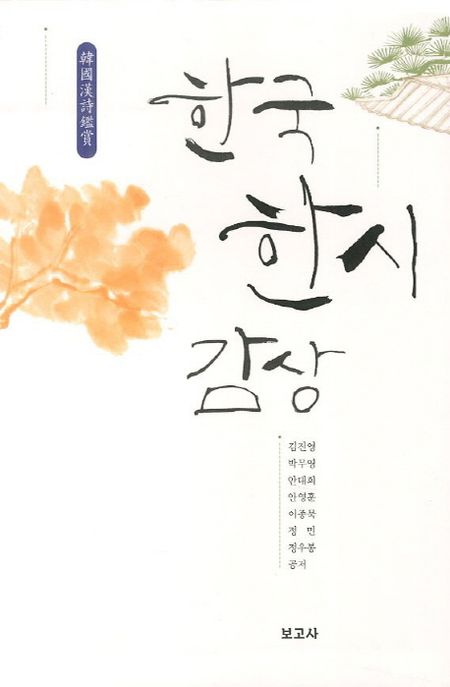 韓國漢詩鑑賞
한국
한시
감상
김진영
박무영
안대회
안영훈
이종묵
정 민
정우봉
공저
보고사